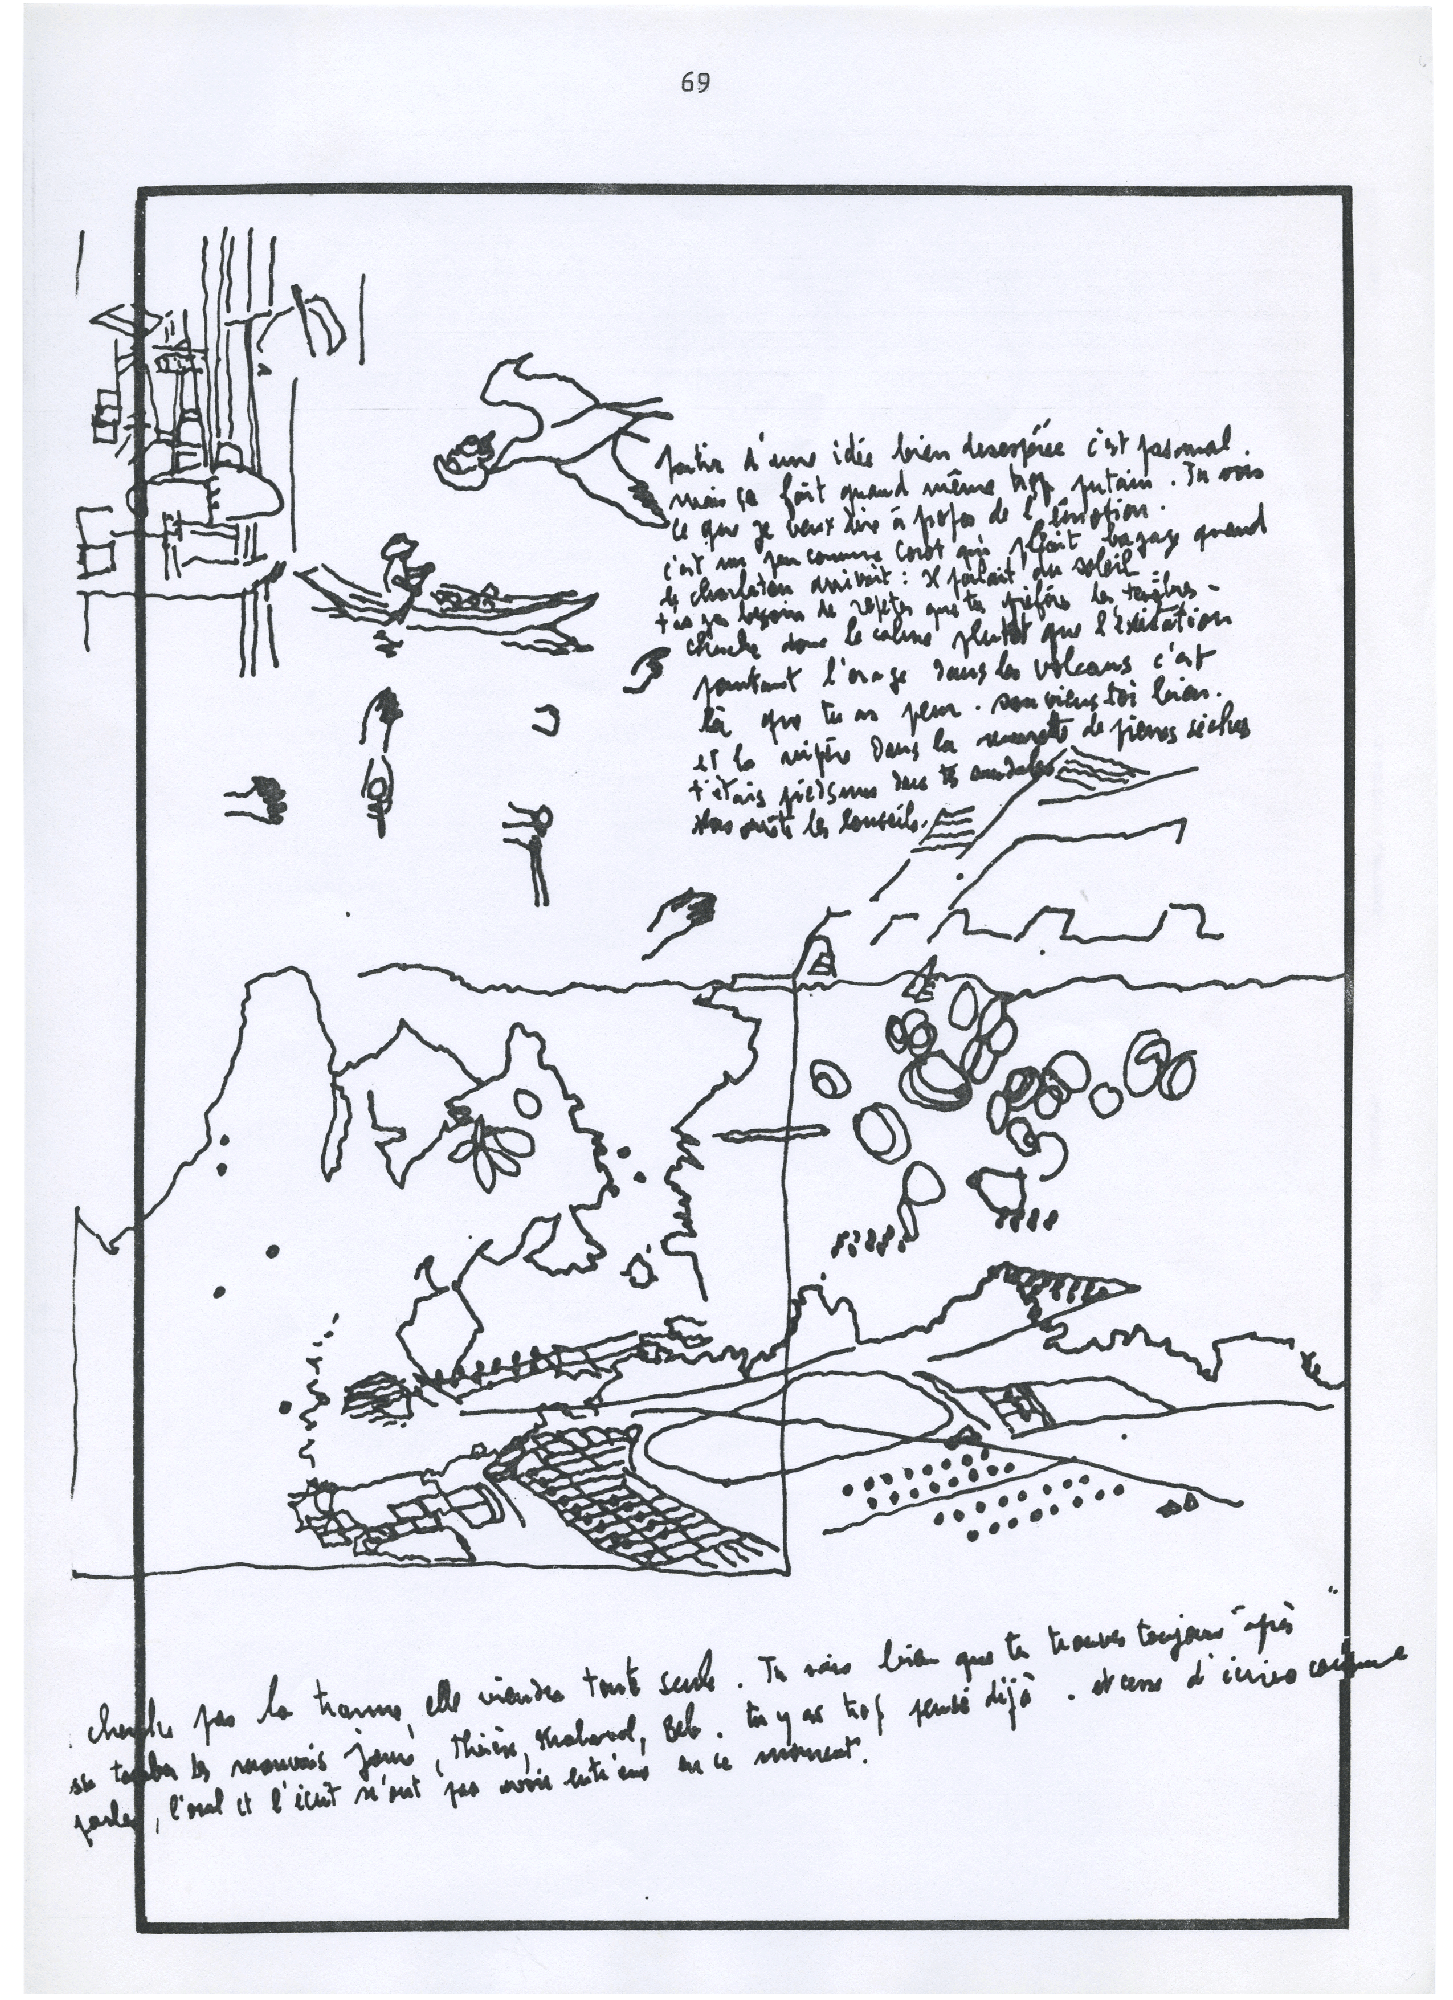 69
partir d'une idée bien desespérée c'est pas mal.
mais ça fait quand même trop putain. Tu vois
ce que je veux dire à propos de l'émotion.
c'est un peu comme Corot qui pliait bagage quand
le charlatan arrivait : il parlait du soleil
t'as pas besoin de répéter que tu préfères les ténèbres -
cherche donc le calme plutôt que l'éxitation
pourtant l'orage dans les volcans c'est
là que tu as peur. souviens toi bien.
et la vipère dans la murette de pierres sèches
t'étais pieds nus dans tes sandales
arrête les conseils.
cherche pas la trame, elle viendra toute seule. Tu sais bien que tu trouves toujours "après"
les mauvais jours, Thérèse, Beb. tu y as trop pensé déjà. et cesse d'écrire comme
parler, l'oral et l'écrit n'ont pas en ce moment.